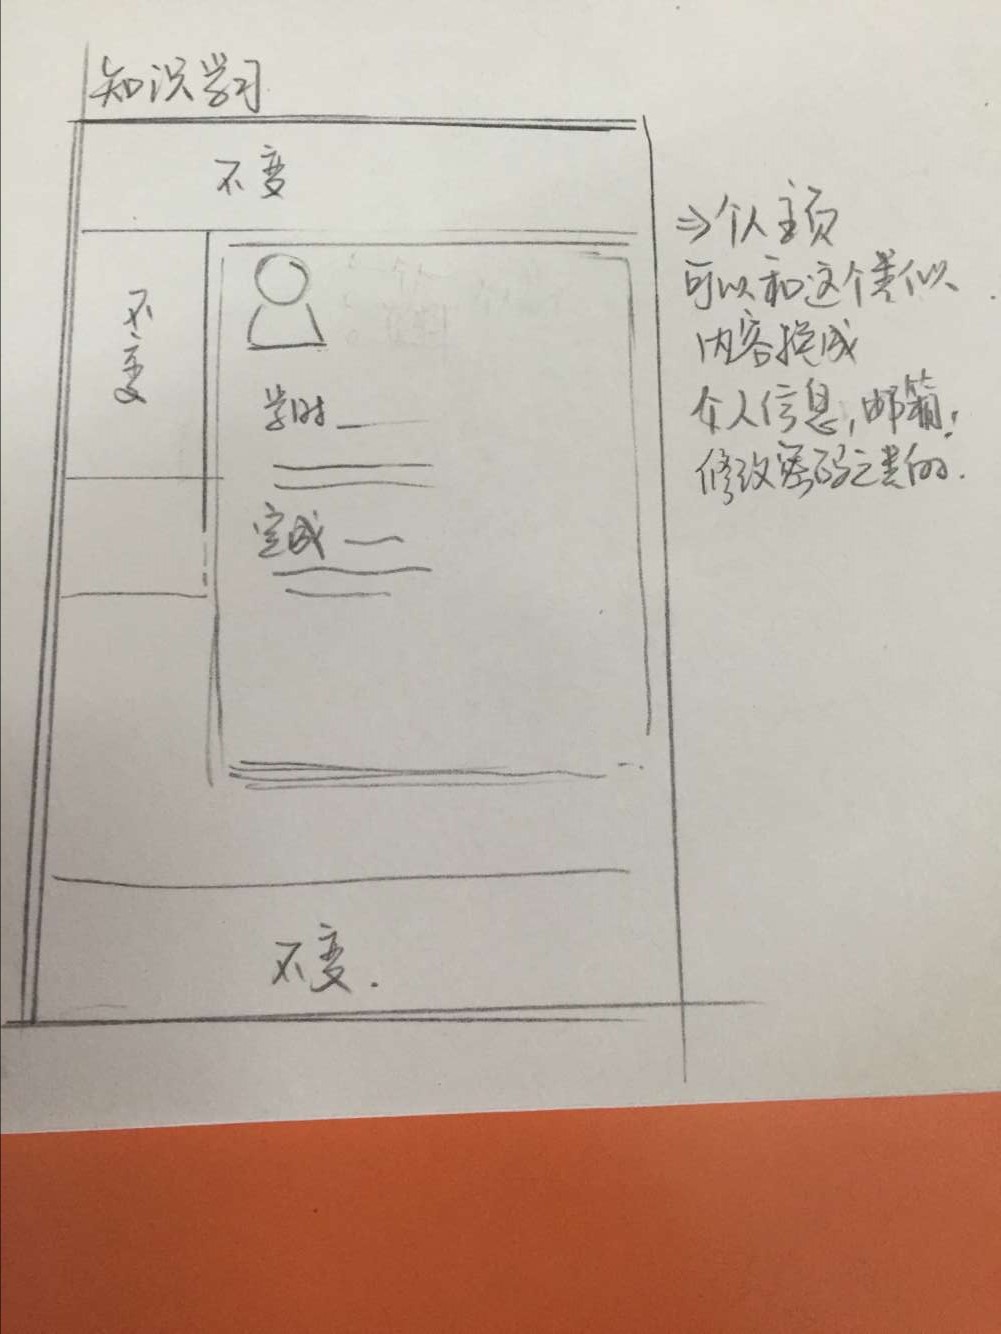 知识学习
不变
不变
学时
完成
不变.
⇒个人主页
可以和这个类似
内容换成
个人信息,邮箱,
修改密码之类的.